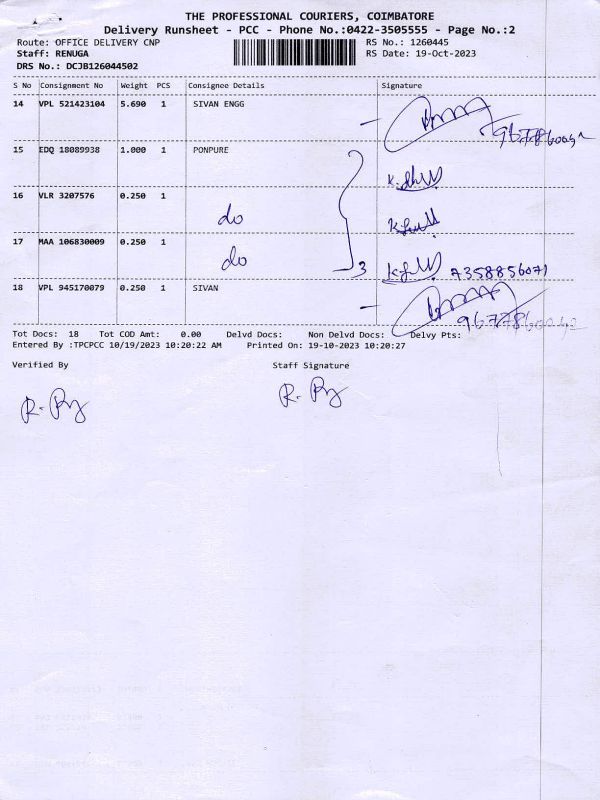 THE PROFESSIONAL COURIERS, COIMBATORE
Delivery Runsheet - PCC - Phone No.:0422-3505555 - Page No.:2
Route: OFFICE DELIVERY CNP RS No.: 1260445
Staff: RENUGA RS Date: 19-Oct-2023
DRS No.: DCJB126044502
S No Consignment No Weight PCS Consignee Details Signature
14 VPL 521423104 5.690 1 SIVAN ENGG
15 EDQ 18089938 1.000 1 PONPURE
16 VLR 3207576 0.250 1 do
17 MAA 106830009 0.250 1 do 3 7358856071
18 VPL 945170079 0.250 1 SIVAN
Tot Docs: 18 Tot COD Amt: 0.00 Delvd Docs: Non Delvd Docs: Delvy Pts:
Entered By :TPCPCC 10/19/2023 10:20:22 AM Printed On: 19-10-2023 10:20:27
Verified By Staff Signature